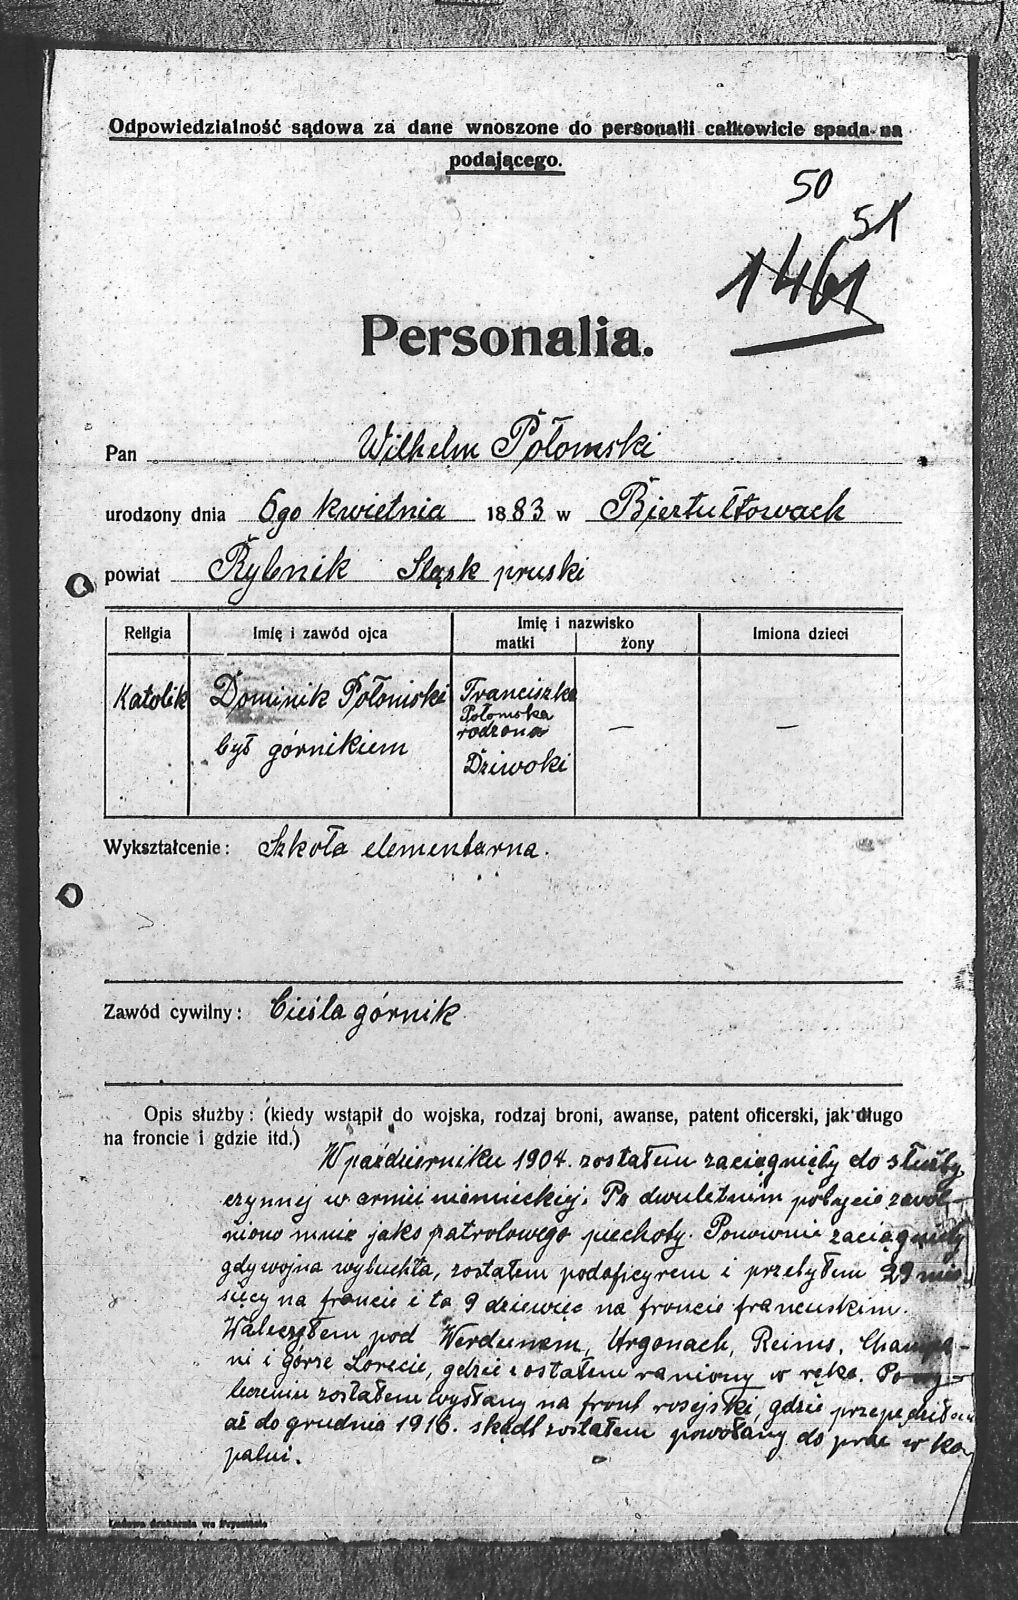 Odpowiedzialność sądowa za dane wnoszone do personalii całkowicie spada na
podającego.
50
51
1461
Personalia.
Pan Wilhelm Połomski
urodzony dnia 6go kwietnia 1883 w Biertułtowach
powiat Rybnik Śląsk pruski
Religia
Imię i zawód ojca
Imię i nazwisko
matki
żony
Imiona dzieci
Katolik
Dominik Połomski
był górnikiem
Franciszka
Połomska
rodzona
Dziwoki
—
—
Wykształcenie: Szkoła elementarna.
Zawód cywilny: Cieśla górnik
Opis służby: (kiedy wstąpił do wojska, rodzaj broni, awanse, patent oficerski, jak długo
na froncie i gdzie itd.)
W październiku 1904. zostałem zaciągnięty do służby
czynnej w armii niemieckiej. Po dwuletnim pobycie zwol-
niono mnie jako patrolowego piechoty. Ponownie zaciągnięty
gdy wojna wybuchła, zostałem podoficyrem i przebyłem 29 mie-
sięcy na froncie i to 9 dziewięć na froncie francuskim.
Walczyłem pod Werdunem, Argonach, Reims, Champa-
ni i górze Lorecie, gdzie zostałem raniony w rękę. Po wy-
leczeniu zostałem wysłany na front rosyjski, gdzie przepędziłem
aż do grudnia 1916. skądl zostałem powołany do prac w ko-
palni.
Ludowa drukarnia we Frysztacie